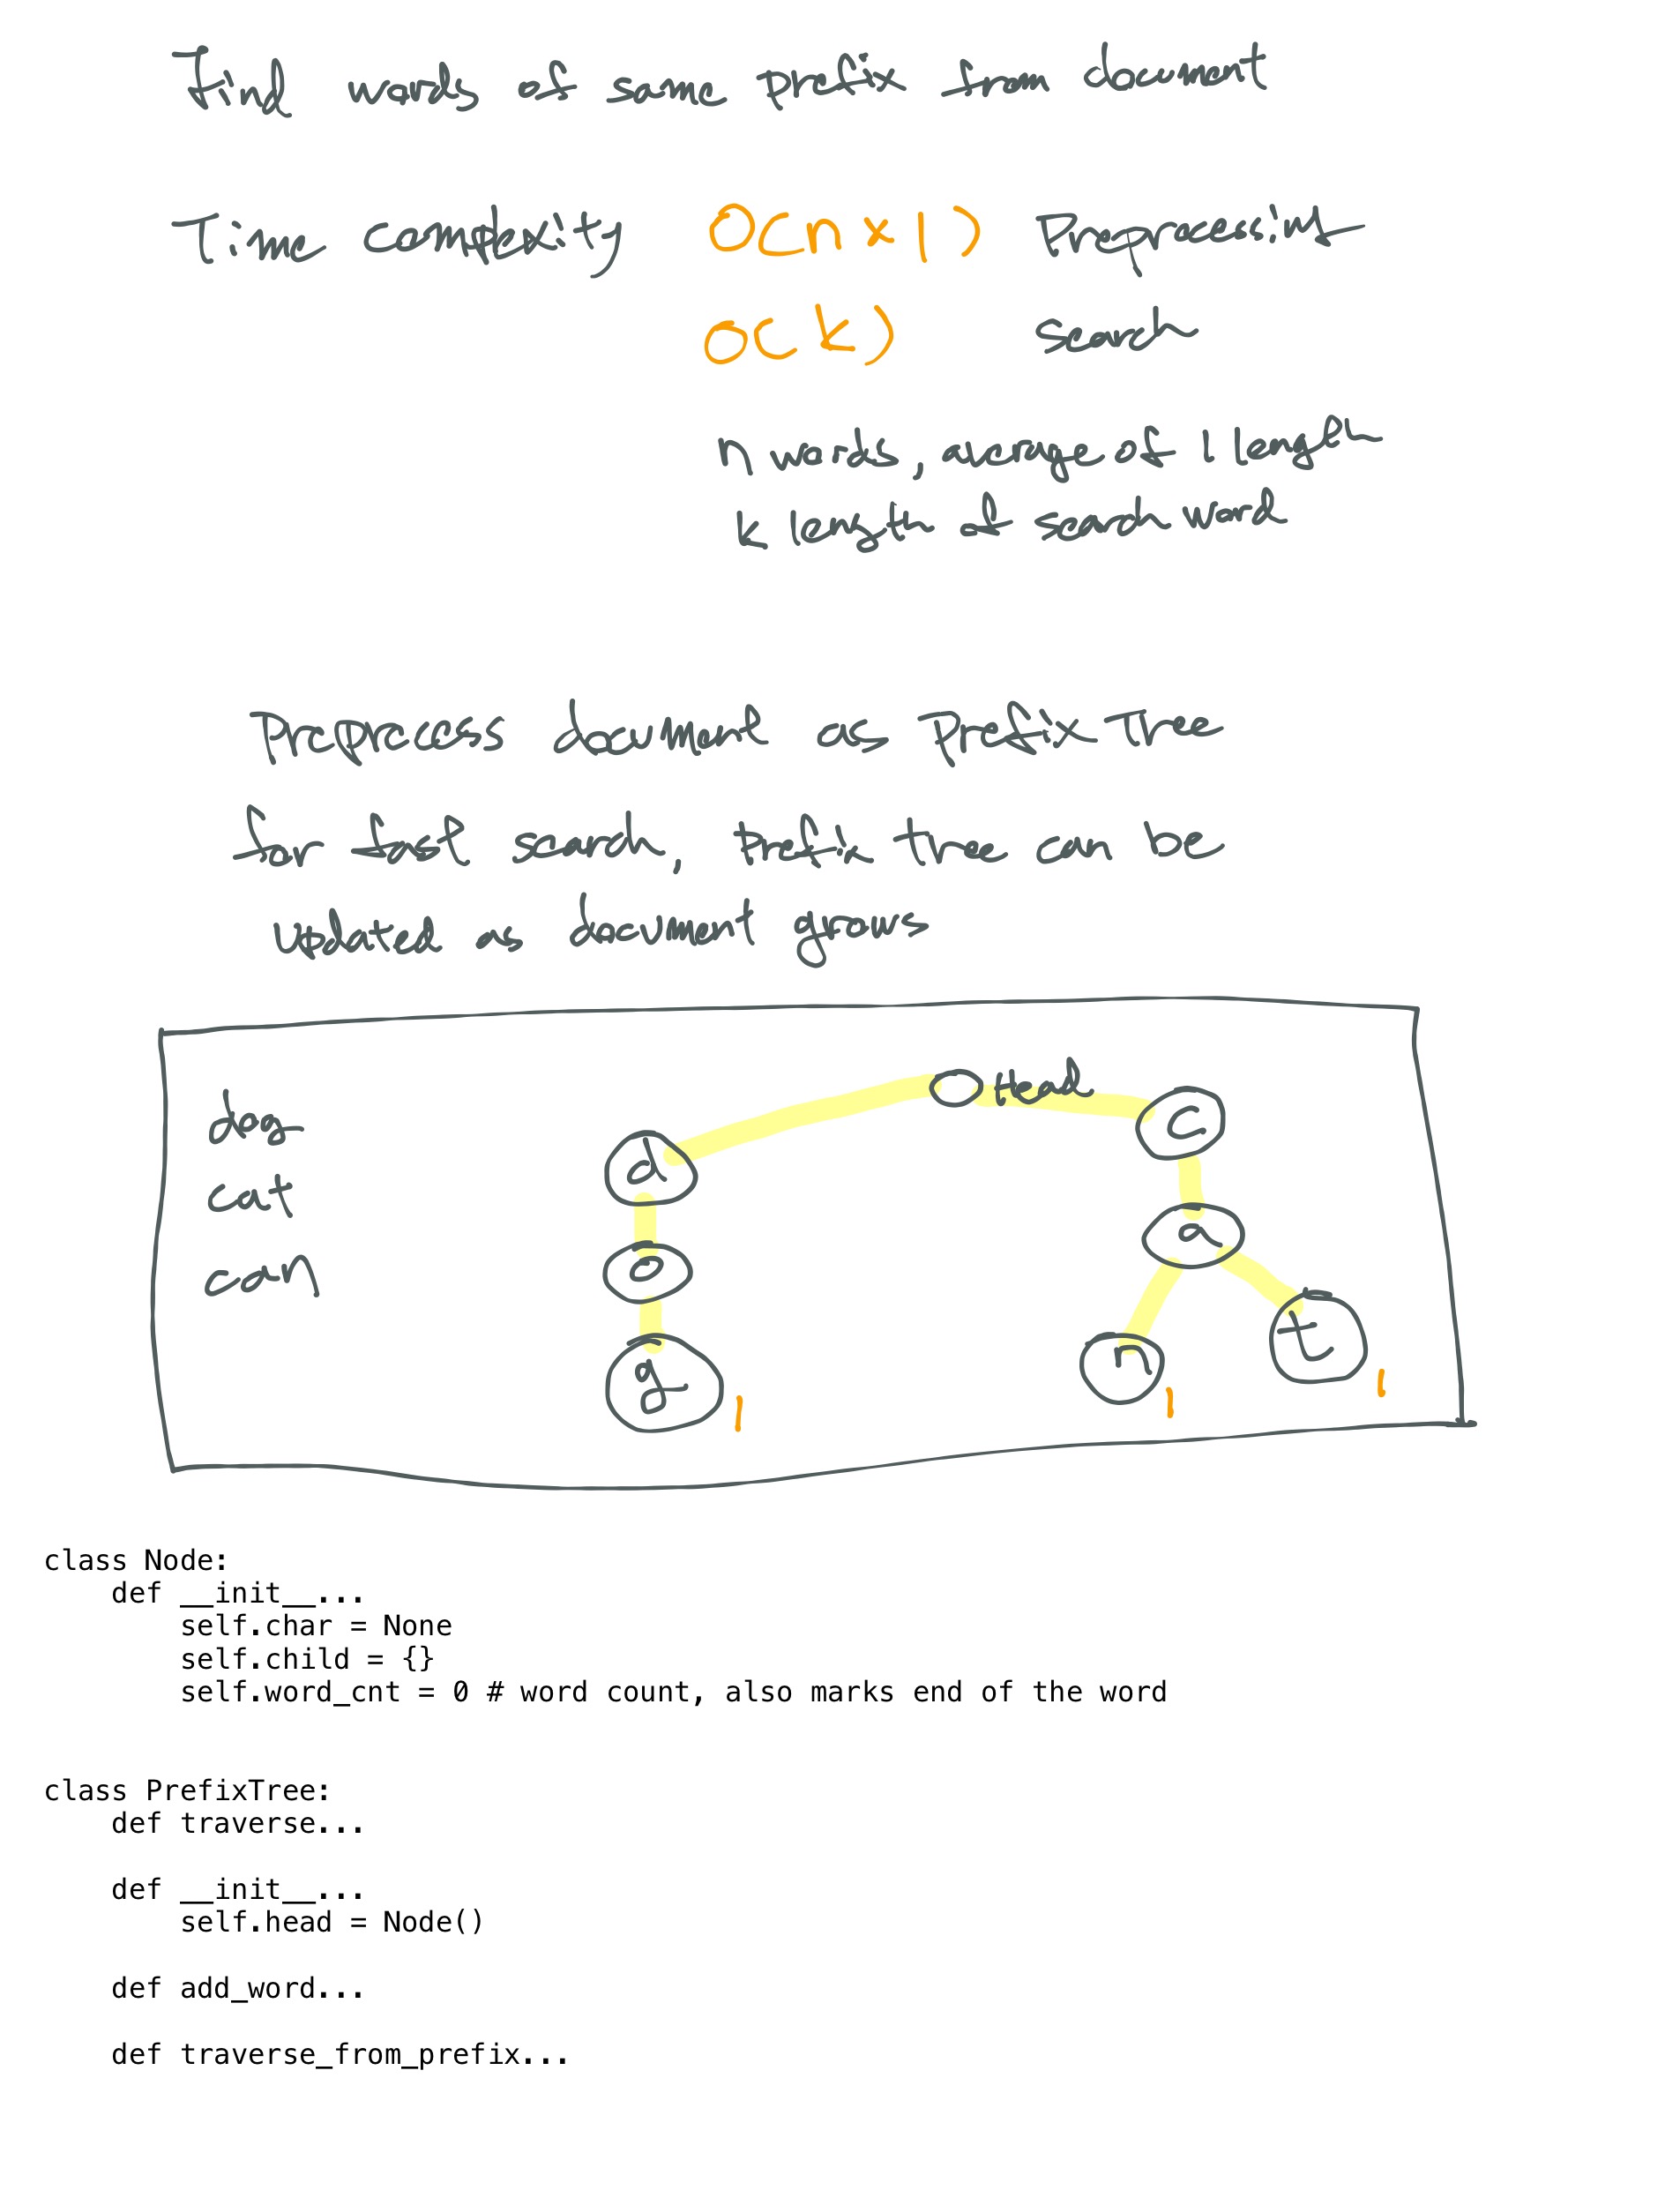 Find words of same prefix from document
Time complexity O(n x l) Preprocessing
O(k) search
n words, average of l length
k length of search word
Preprocess document as Prefix Tree
for fast search, Prefix tree can be
updated as document grows
Head
dog d c
cat o a
can g 1 n 1 t 1
class Node:
    def __init__...
        self.char = None
        self.child = {}
        self.word_cnt = 0 # word count, also marks end of the word
class PrefixTree:
    def traverse...
    def __init__...
        self.head = Node()
    def add_word...
    def traverse_from_prefix...